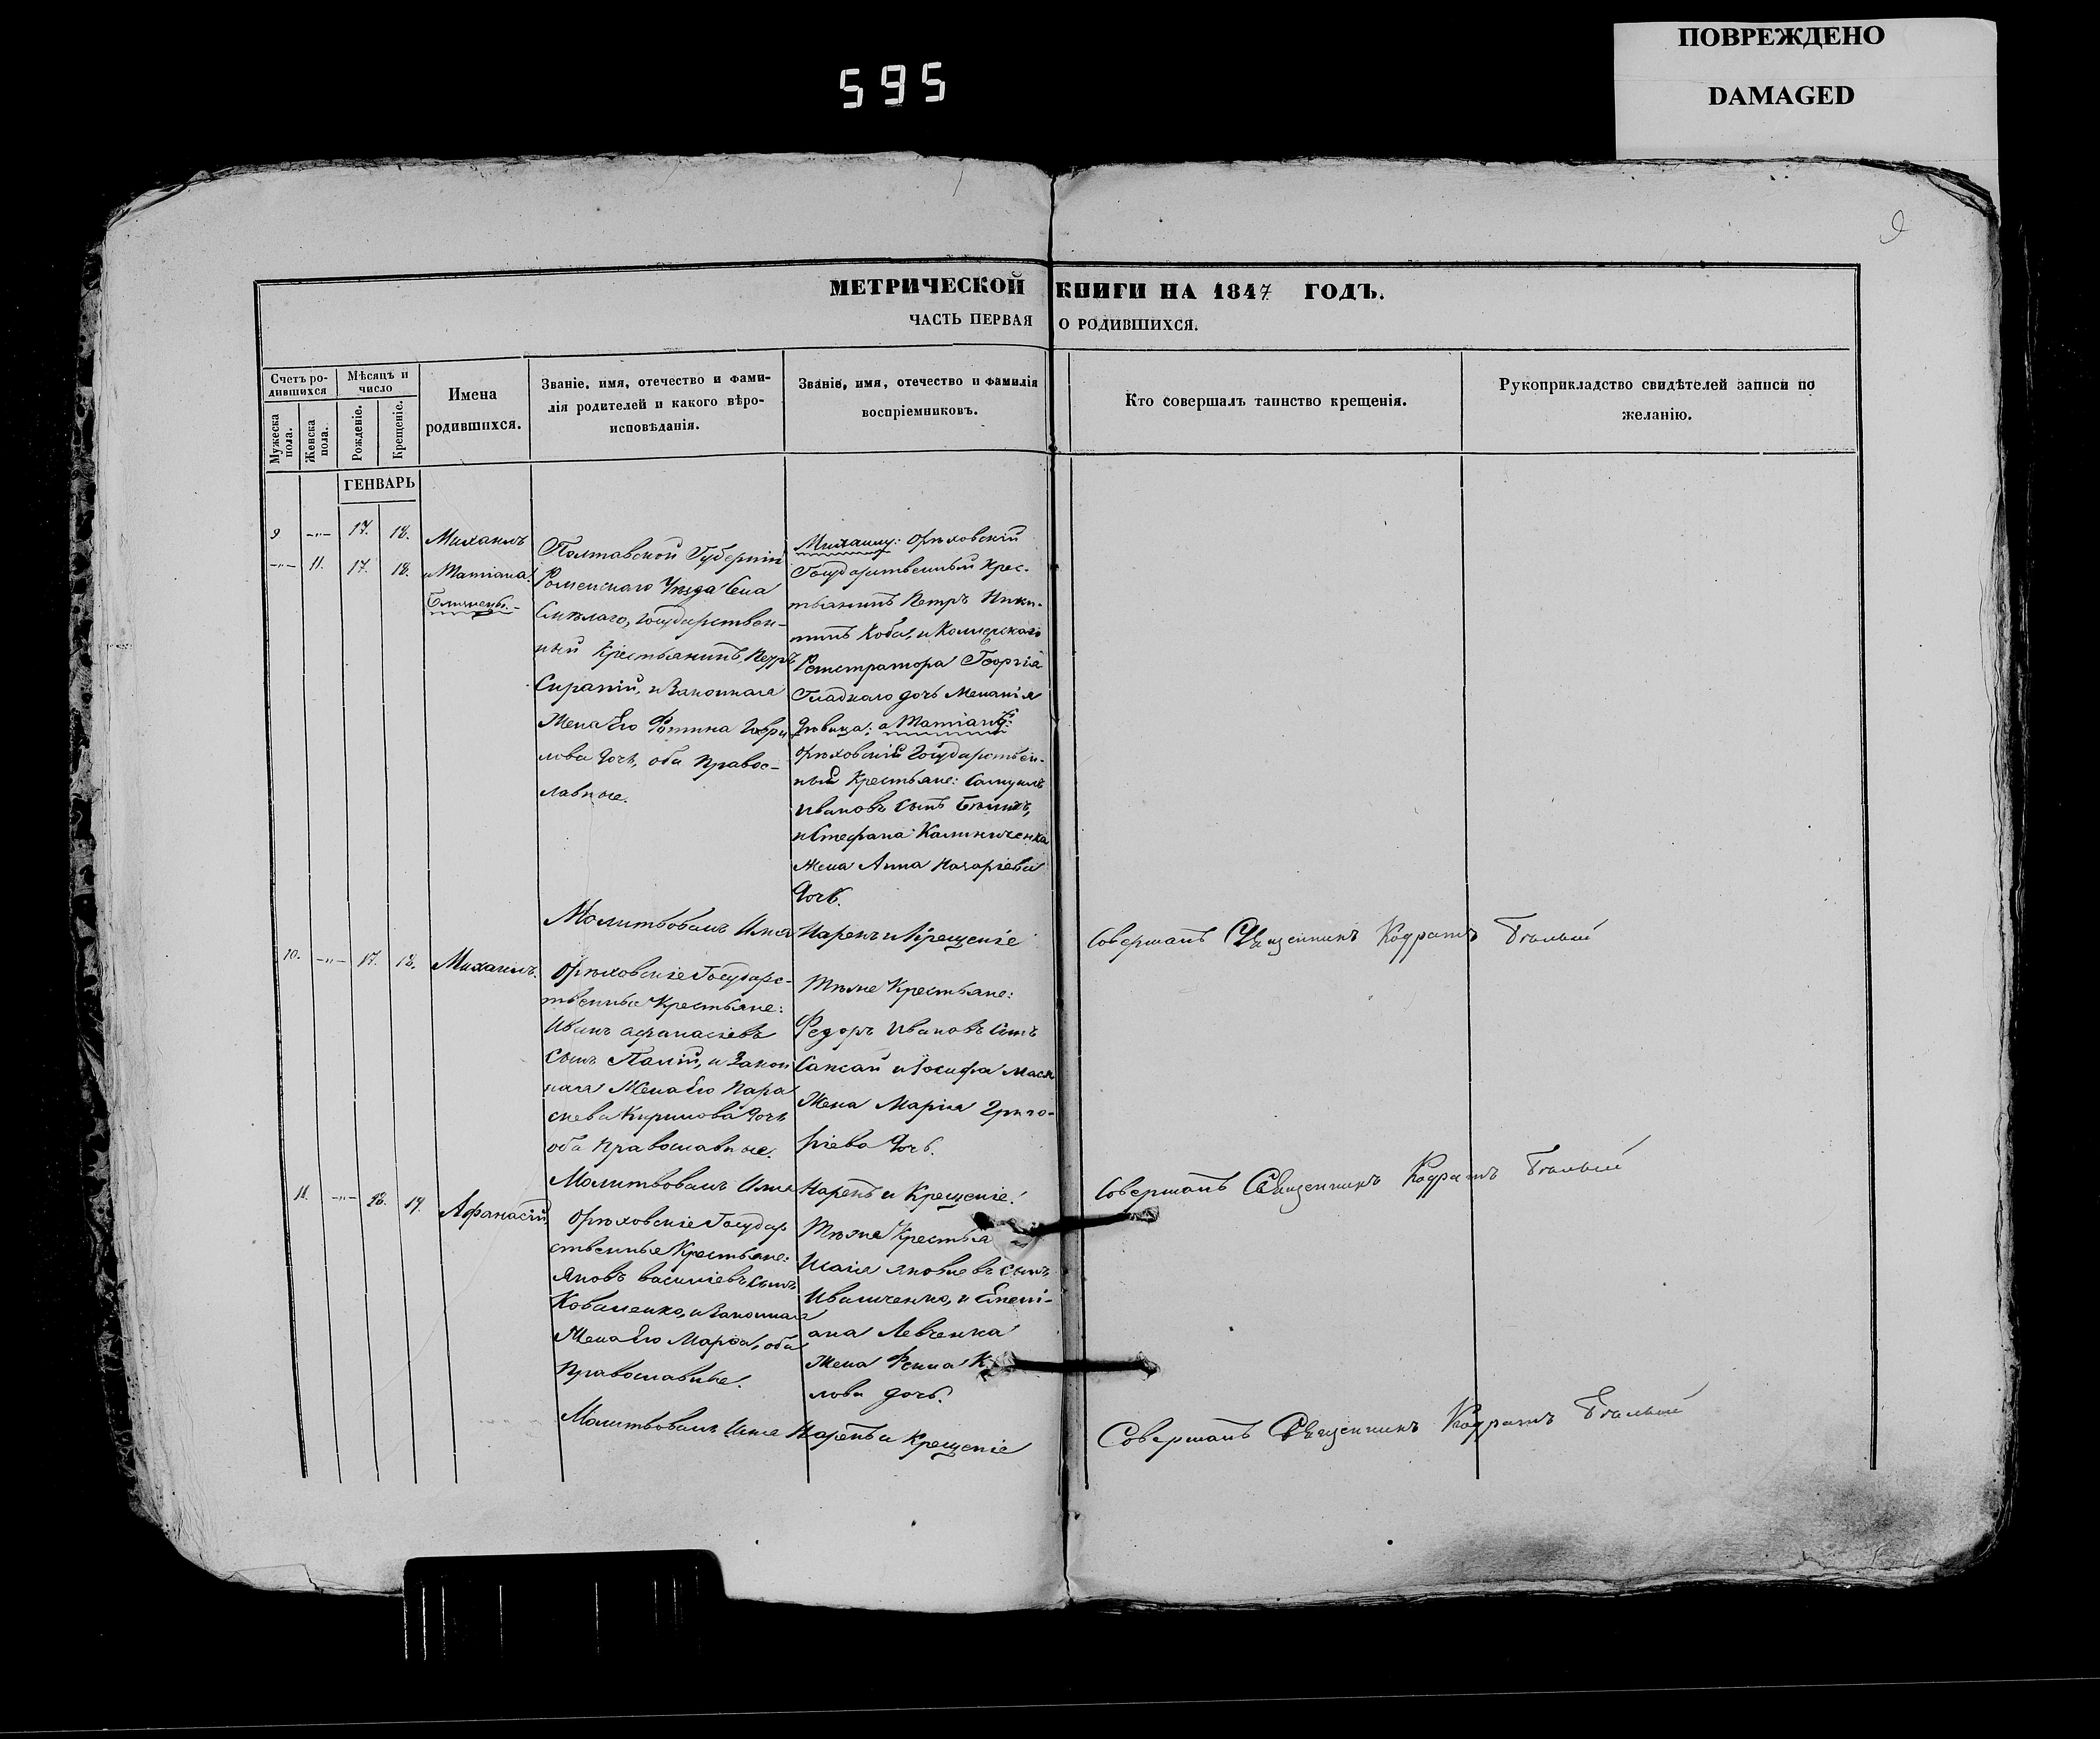 ПОВРЕЖДЕНО
DAMAGED
595
9
МЕТРИЧЕСКОЙ КНИГИ НА 1847 ГОДЪ.
ЧАСТЬ ПЕРВАЯ О РОДИВШИХСЯ.
Счетъ ро-
дившихся
Мужеска
пола.
Женска
пола.
Мѣсяцъ и
число
Рожденіе.
Крещеніе.
Имена
родившихся.
Званіе, имя, отечество и фами-
лія родителей и какого вѣро-
исповѣданія.
Званіе, имя, отечество и фамилія
воспріемниковъ.
Кто совершалъ таинство крещенія.
Рукоприкладство свидѣтелей записи по
желанію.
ГЕНВАРЬ
9 -"- 17. 18. Михаилъ
-"- 11. 17. 18. и Татіана.
Близнецы.-
Полтавской Губерніи
Роменскаго Уѣзда Села
Смѣлаго, государствен-
ный Крестьянинъ, Петръ
и Законная
Жена Его Гаври
лова дочь, оба Правос-
лавные.
Михаилу: Орѣховскій
Государственный Крес-
тьянинъ Петръ Ники-
тинъ Коба, и Коллежскаго
Регистратора Георгія
Гладкаго дочь Меланія
дѣвица; а Татіанѣ:
Орѣховскій Государствен-
ный Крестьяне: Самуилъ
Ивановъ сынъ
и Стефана Калиниченка
Жена Анна Назаріева
дочь.
Молитвовалъ Имя Нарекъ и Крещеніе
Совершалъ Священникъ Кодратъ Бѣлый
10. -"- 17. 18. Михаилъ.
Орѣховскіе Государс-
твенные Крестьяне:
Иванъ Афанасіевъ
сынъ Палій, и Закон
ная Жена Его Пара
скева Кирилова дочь
оба Православные.
Тѣже Крестьяне:
Федоръ Ивановъ сынъ
и Іосифа
Жена Марія Григо-
ріева дочь.
Молитвовалъ Имя Нарекъ и Крещеніе.
Совершалъ Священникъ Кодратъ Бѣлый
11. -"- 18. 19. Афанасій,
Орѣховскіе Государ
ственные Крестьяне:
Яковъ Василіевъ сынъ
Коваленко, и Законная
Жена Его Марфа, оба
Православные.
Тѣже Крестья
Исаія Яковлевъ сынъ
Иващенко, и Емелі-
ана Левченка
Жена Фекла К
лова дочь.
Молитвовалъ Имя Нарекъ и Крещеніе
Совершалъ Священникъ Кодратъ Бѣлый